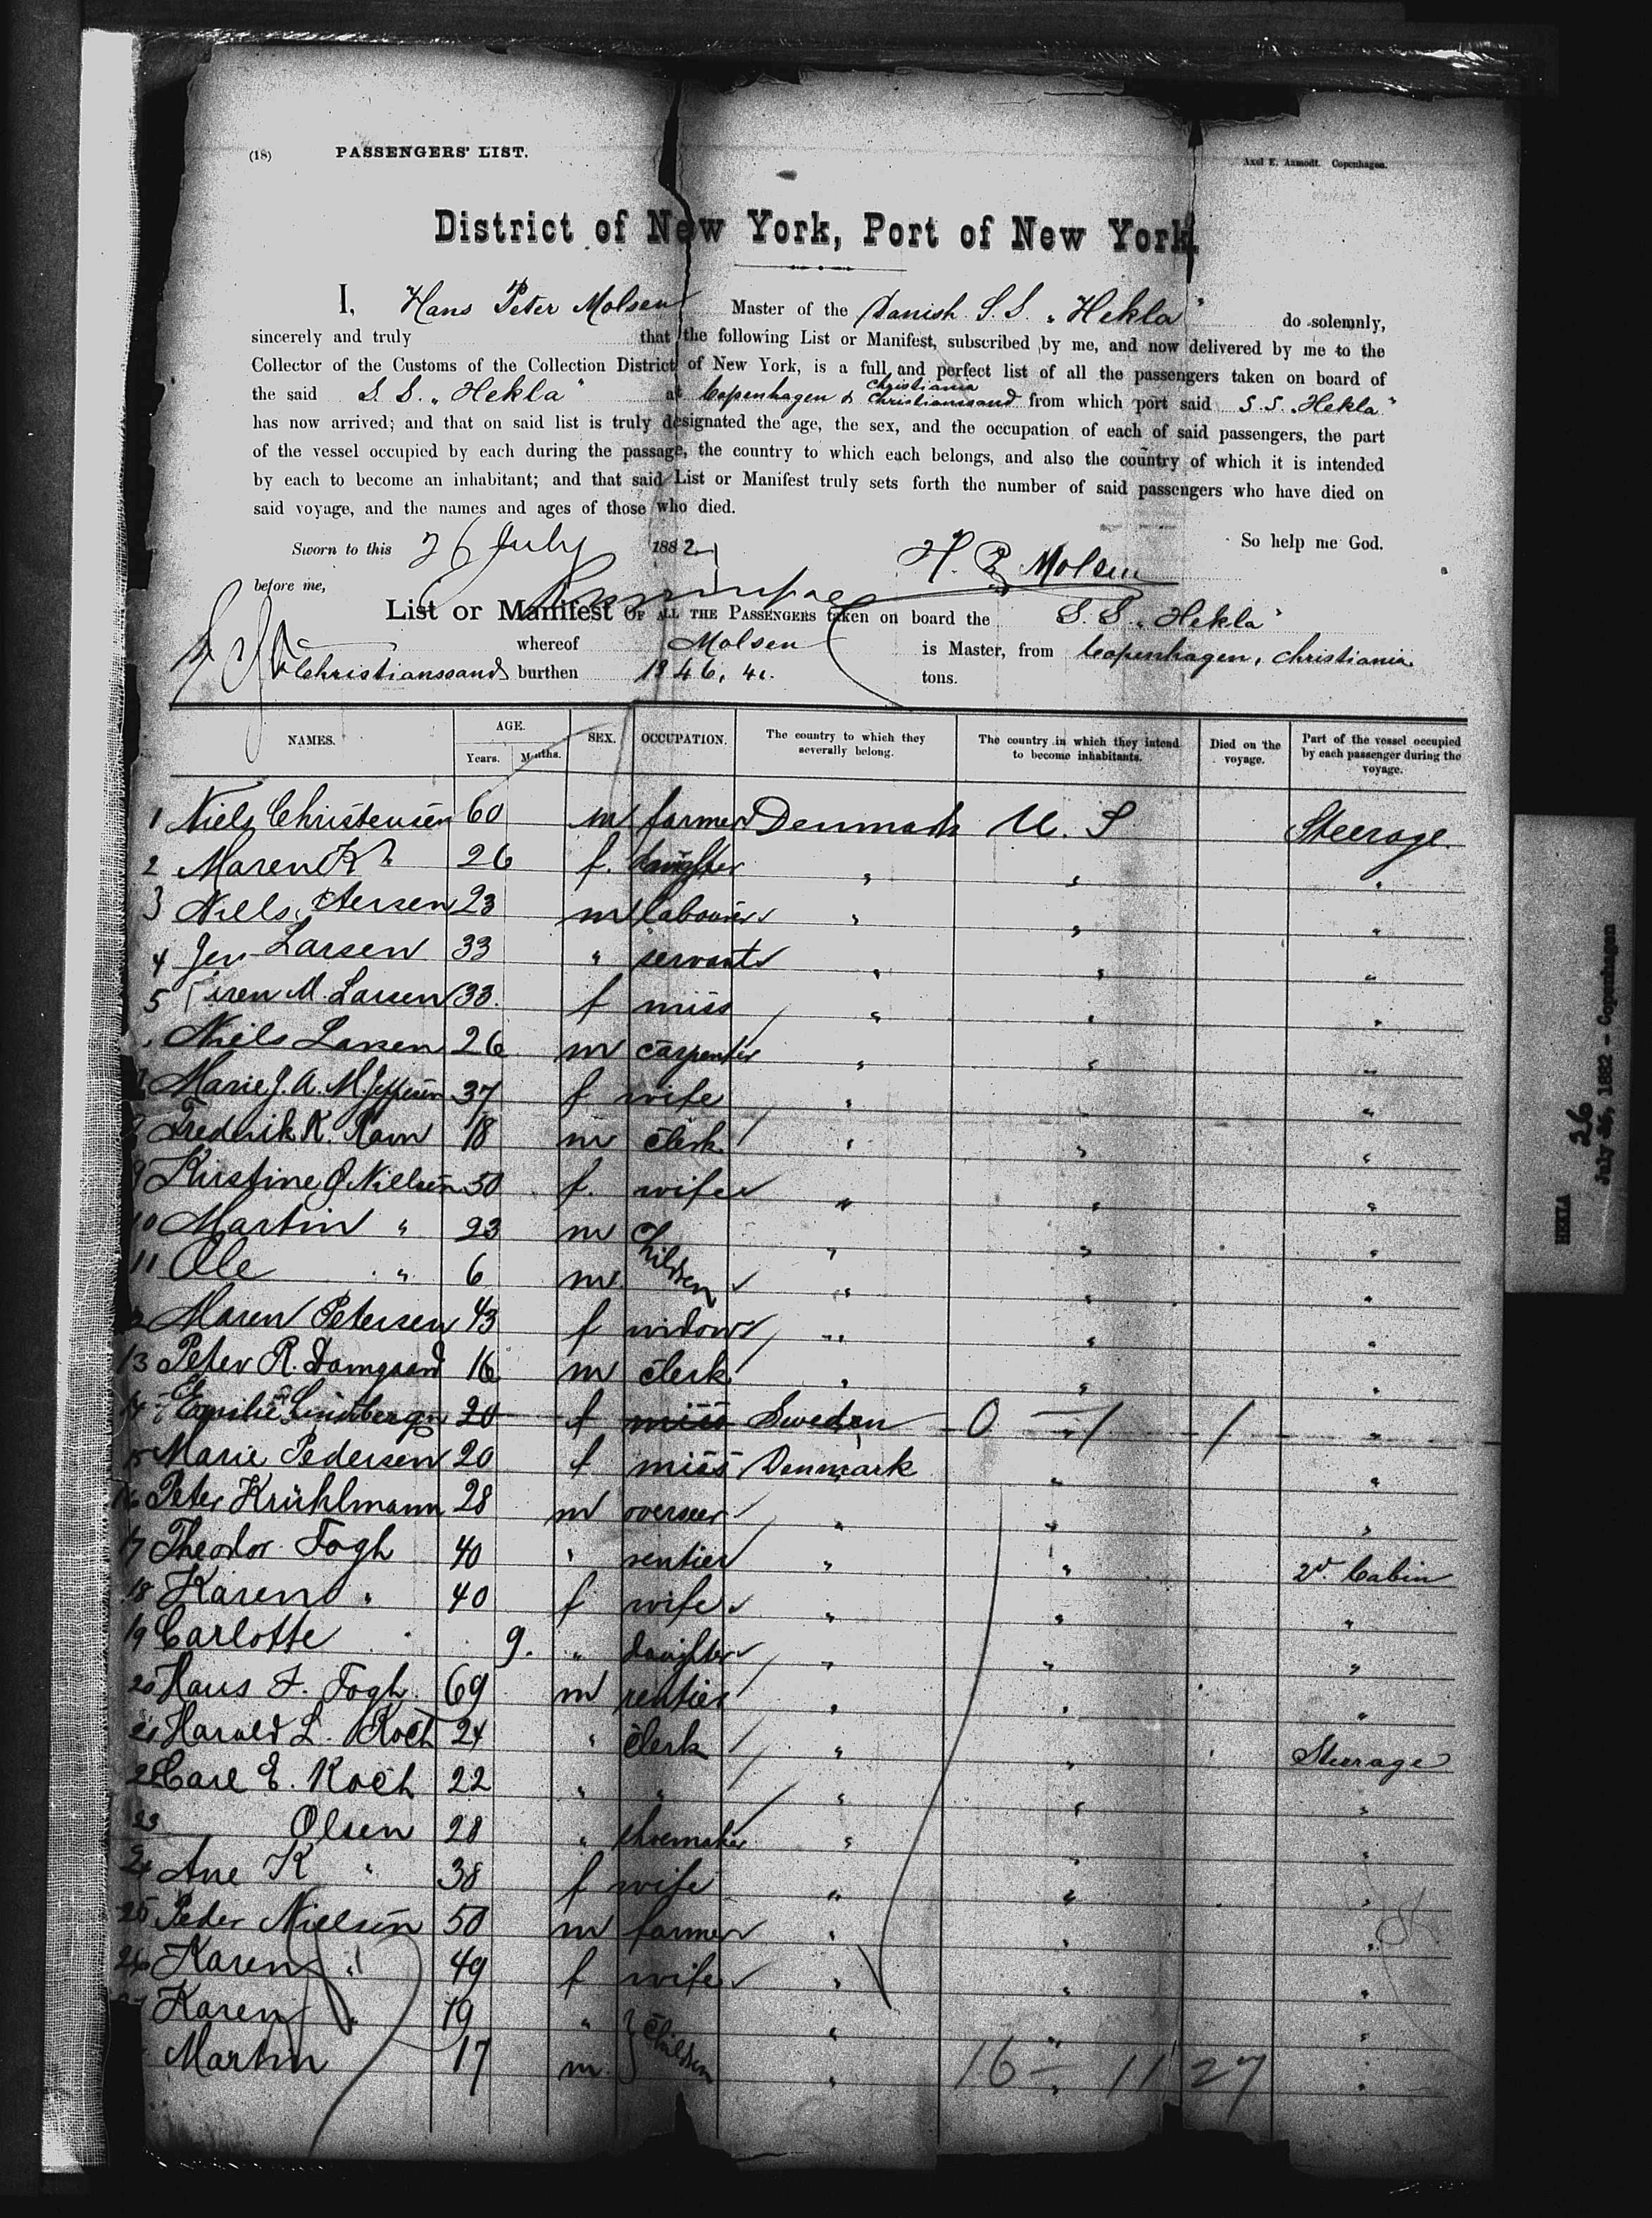 (18)
PASSENGERS' LIST.
Axel E. Aamodt. Copenhagen.
District of New York, Port of New York.
I, Hans Peter Molsen Master of the Danish S.S. „Hekla" do solemnly,
sincerely and truly that the following List or Manifest, subscribed by me, and now delivered by me to the
Collector of the Customs of the Collection District of New York, is a full and perfect list of all the passengers taken on board of
the said S.S. „Hekla" at Copenhagen & Christiania Christianssand from which port said S.S. „Hekla"
has now arrived; and that on said list is truly designated the age, the sex, and the occupation of each of said passengers, the part
of the vessel occupied by each during the passage, the country to which each belongs, and also the country of which it is intended
by each to become an inhabitant; and that said List or Manifest truly sets forth the number of said passengers who have died on
said voyage, and the names and ages of those who died.
Sworn to this 26 July 1882
So help me God.
H. P. Molsen
before me,
List or Manifest OF ALL THE PASSENGERS taken on board the S.S. „Hekla"
whereof Molsen is Master, from Copenhagen, Christiania
Christianssand burthen 1846, 41. tons.
NAMES. AGE. Years. Months. SEX. OCCUPATION. The country to which they severally belong. The country in which they intend to become inhabitants. Died on the voyage. Part of the vessel occupied by each passenger during the voyage.
1 Niels Christensen 60 m farmer Denmark U. S Steerage
2 Maren K " 26 f. daughter " " "
3 Niels 23 m labourer " " "
4 Larsen 33 " servant " " "
5 M. Larsen 33. f miss " " "
Niels Larsen 26 m carpenter " " "
Marie J. A. M. Jeppesen 37 f wife " " "
Frederik K. Ravn 18 m clerk " " "
9 Kirstine O. Nielsen 50 f. wife " " "
10 Martin " 23 m Children " " "
11 Ole " 6 m " " "
Maren Petersen 43 f widow " " "
13 Peter R. Damgaard 16 m clerk " " "
14 Emilie Lindberg 20 f miss Sweden 0 " / / "
15 Marie Pedersen 20 f miss Denmark " "
16 Peter Krühlmann 28 m overseer " " "
17 Theodor Fogh 40 " rentier " " 2d. Cabin
18 Karen " 40 f wife " " "
19 Carlotte " 9. " daughter " " "
20 Hans F. Fogh 69 m rentier " " "
21 Harald L. Koch 24 " clerk " " Steerage
22 Carl E. Koch 22 " " " " "
23 Olsen 28 " shoemaker " " "
24 Ane K " 38 f wife " " "
25 Peder Nielsen 50 m farmer " " "
26 Karen " 49 f wife " " "
Karen " 19 " } Children " " "
Martin 17 m. " " "
16 - 11 27
HEKLA
26
July 26, 1882 - Copenhagen